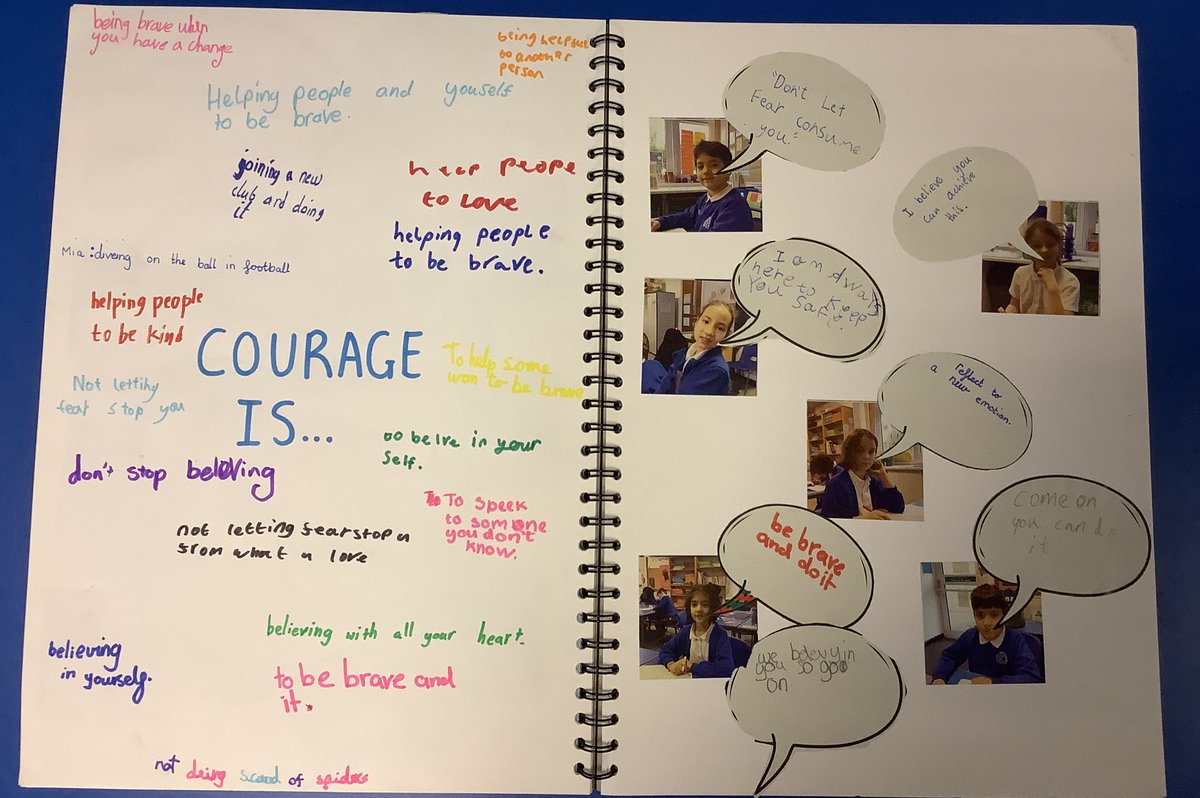 being brave when
you have a change
being helpful
to another
person
Helping people and youself
to be brave.
joining a new
club and doing
it
peope
to love
helping people
to be brave.
Mia: diveing on the ball in football
helping people
to be kind
COURAGE
IS...
To help some
won to be brave
Not letting
fear stop you
to belve in your
self.
don't stop beleving
To To speek
to someone
you don't
know.
not letting fear stop u
from what u love
believing with all your heart.
believing
in yourself.
to be brave and
it.
not being scared of spiders
"Don't Let
Fear consume
you."
I believe you
can achieve
this.
I am always
here to keep
you safe.
reflect to
a new emotion.
come on
you can do
it
be brave
and do it
we belev yin
you so goo
on